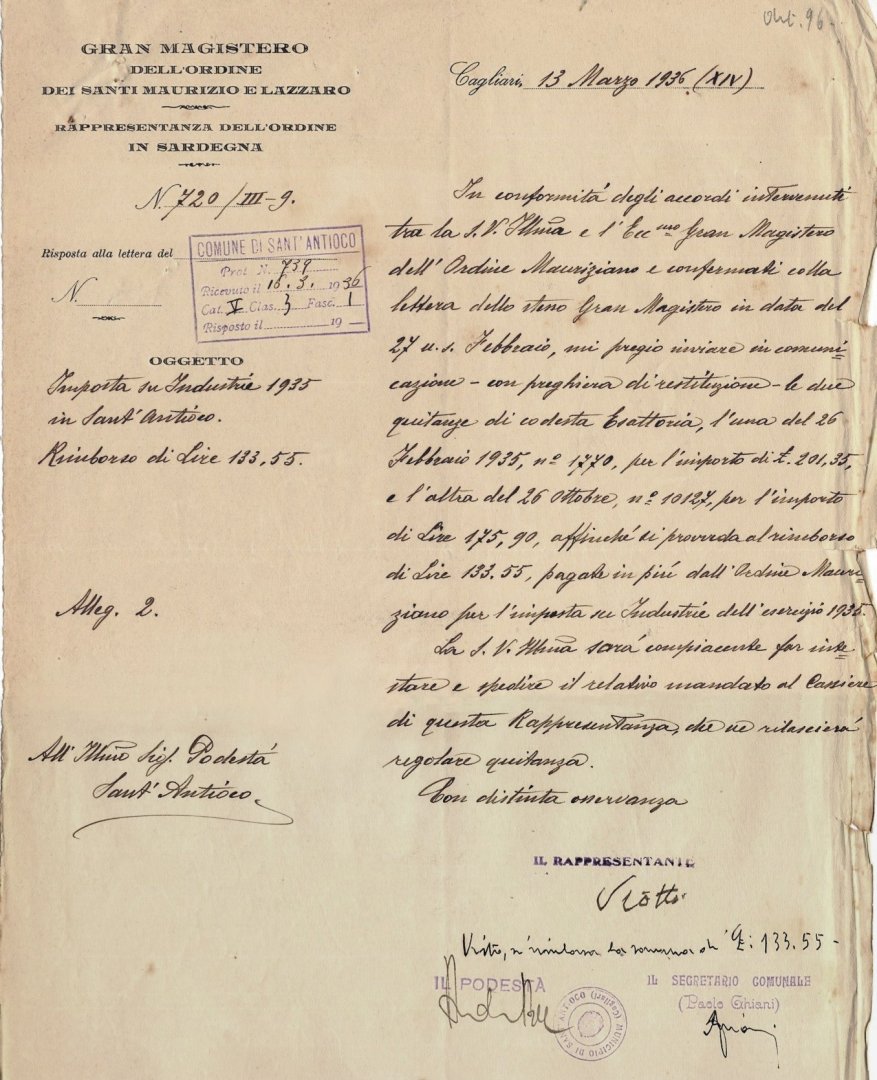 GRAN MAGISTERO
DELL'ORDINE
DEI SANTI MAURIZIO E LAZZARO
RAPPRESENTANZA DELL'ORDINE
IN SARDEGNA
N. 720/III-9.
Risposta alla lettera del
N.
COMUNE DI SANT'ANTIOCO
Prot N. 739
Ricevuto il 16.3. 1936
Cat. V Clas. 3 Fasc. 1
Risposto il 19
OGGETTO
Imposta su Industrie 1935
in Sant'Antioco.
Rimborso di Lire 133,55.
Alleg. 2.
All'Illmo Sig. Podestá
Sant'Antioco
96
Cagliari, 13 Marzo 1936 (XIV)
In conformitá degli accordi intervenuti
tra la S.V. Illma e l'Eccmo Gran Magistero
dell'Ordine Mauriziano e confermati colla
lettera dello stesso Gran Magistero in data del
27 u.s. Febbraio, mi pregio inviare in comuni=
cazione - con preghiera di restituzione - le due
quitanze di codesta Esattoria, l'una del 26
Febbraio 1935, nº 1770, per l'importo di £. 201,35,
e l'altra del 26 Ottobre, nº 10127, per l'importo
di Lire 175,90, affinché si provveda al rimborso
di Lire 133.55, pagate in piú dall'Ordine Mauri=
ziano per l'imposta su Industrie dell'esercizio 1935.
La S.V. Illma sará compiacente far inte=
stare e spedire il relativo mandato al Cassiere
di questa Rappresentanza, che ne rilascierá
regolare quitanza.
Con distinta osservanza
IL RAPPRESENTANTE
Visto, si rimborsa la somma di £: 133.55-
IL PODESTÀ
MUNICIPIO DI SANT'ANTIOCO (Cagliari)
IL SEGRETARIO COMUNALE
(Paolo Ghiani)